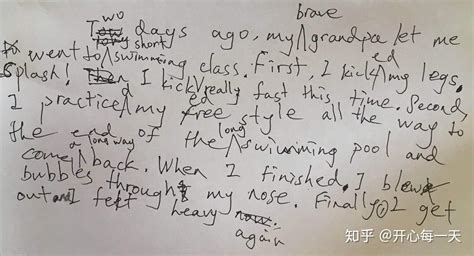 wo brave
T days ago, my grandpa let me
short
went to swimming class. First, I kicked my legs.
Splash! I kick really fast this time. Second,
I practiced my free style all the way to
the end of the long swimming pool and
come a long way back. When I finished, I
bubbles through my nose. Finally, I get
out and I felt heavy
again
知乎 @开心每一天